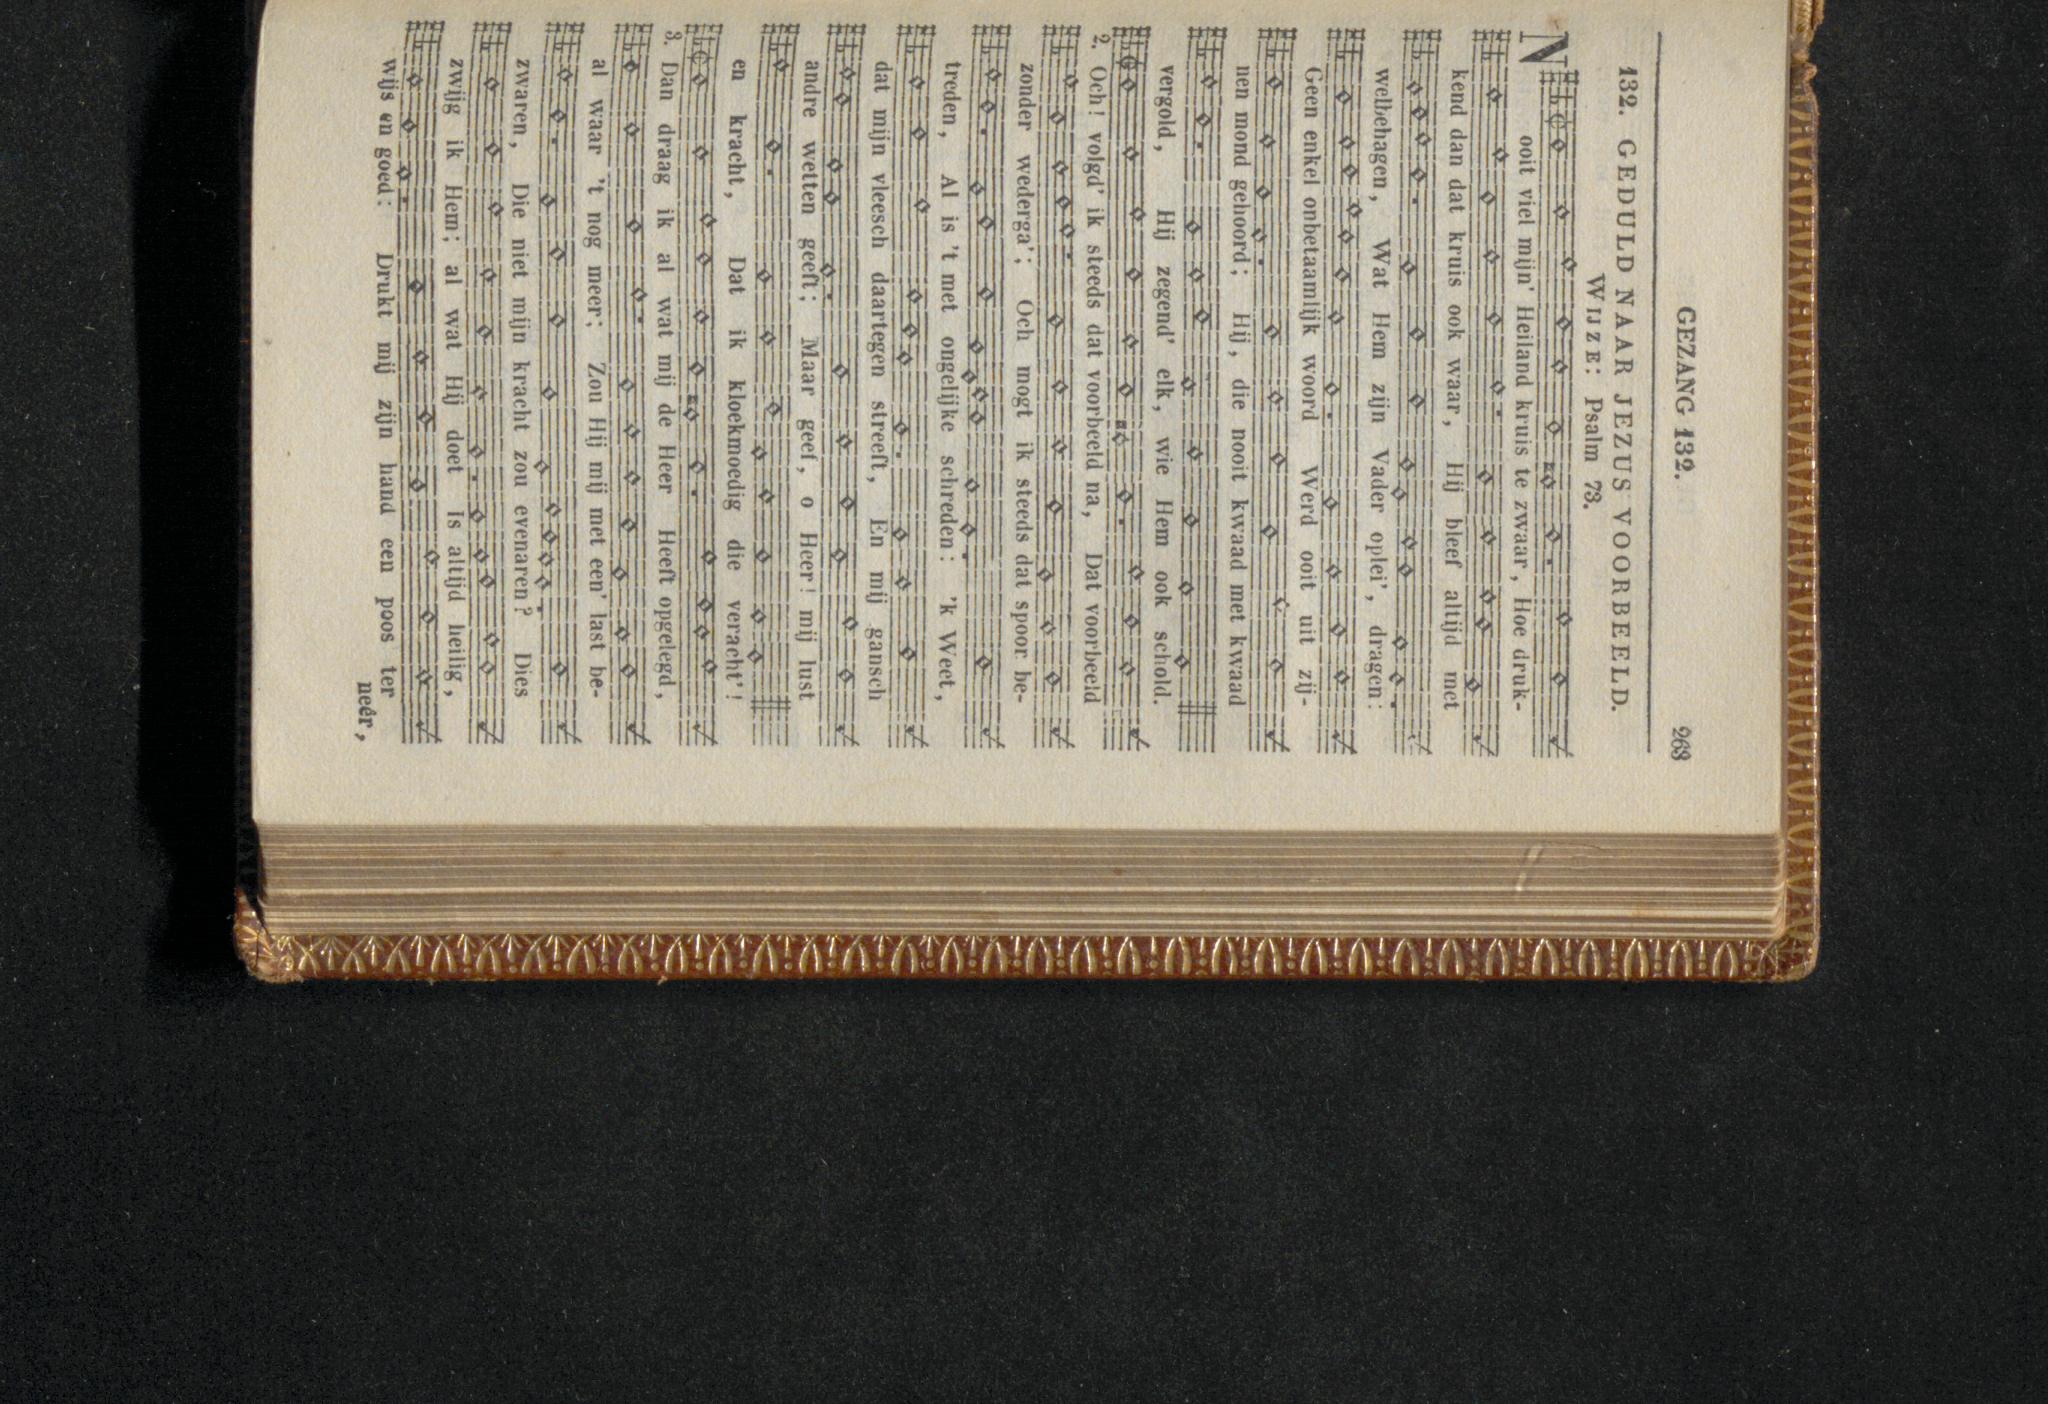 GEZANG 132. 268
132. GEDULD NAAR JEZUS VOORBEELD.
WIJZE: Psalm 73.
Nooit viel mijn' Heiland kruis te zwaar, Hoe druk-
kend dan dat kruis ook waar, Hij bleef altijd met
welbehagen, Wat Hem zijn Vader oplei', dragen:
Geen enkel onbetaamlijk woord Werd ooit uit zij-
nen mond gehoord; Hij, die nooit kwaad met kwaad
vergold, Hij zegend' elk, wie Hem ook schold.
2. Och! volgd' ik steeds dat voorbeeld na, Dat voorbeeld
zonder wederga'; Och mogt ik steeds dat spoor be-
treden, Al is 't met ongelijke schreden: 'k Weet,
dat mijn vleesch daartegen streeft, En mij gansch
andre wetten geeft; Maar geef, o Heer! mij lust
en kracht, Dat ik kloekmoedig die veracht'!
3. Dan draag ik al wat mij de Heer Heeft opgelegd,
al waar 't nog meer; Zou Hij mij met een' last be-
zwaren, Die niet mijn kracht zou evenaren? Dies
zwijg ik Hem; al wat Hij doet Is altijd heilig,
wijs en goed: Drukt mij zijn hand een poos ter
neêr,